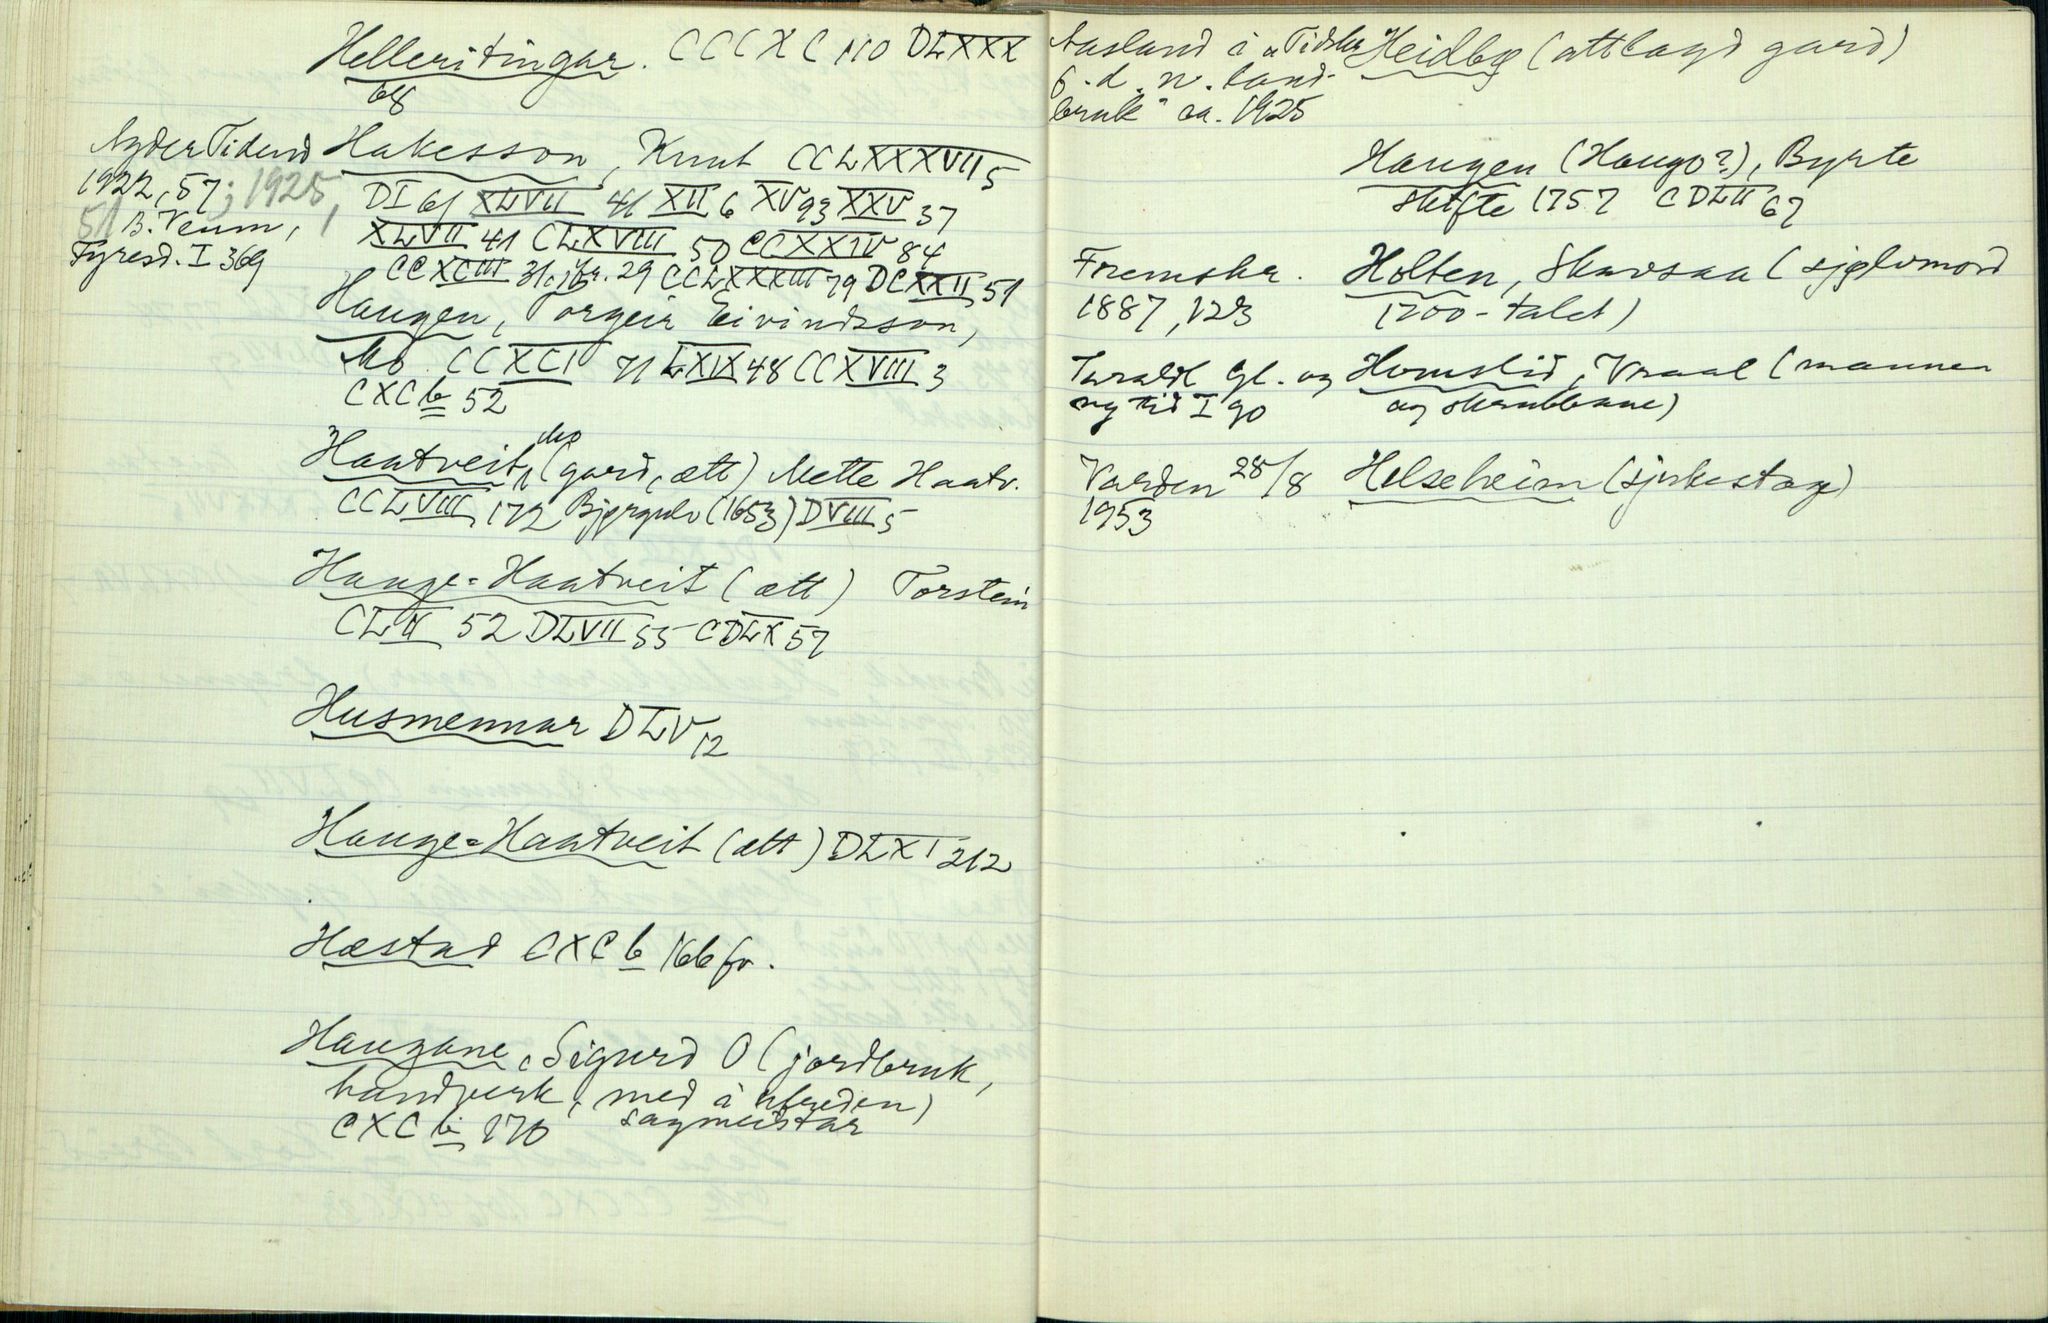 Helleristingar. CCCXC 110 DLXXX
68
Agder Tidend
1922, 57; 1925,
51 B. Veum,
Fyresd. I 369
Hakesson, Knut CCLXXXVII 5
DI 61 XLVII 41 XII 6 XV 93 XXV 37
XLVII 41 CLXVIII 50 CCXXIV 84
CCXCIII 31. jfr. 29 CCLXXXIII 79 DCXXII 51
Haugen, Torgeir Eivindsson,
Mo CCXCI 71 LXIX 48 CCXVIII 3
CXC b 52
Haatveit, Mo (gard, ætt) Mette Haatv.
CCLVIII 172 Bjørgulv (1653) DVIII 5
Hauge-Haatveit (ætt) Torstein
CLII 52 DLVII 55 CDLX 57
Husmennar DLV 12
Hauge-Haatveit (ætt) DLXI 212
Hæstad CXC b 166 fv.
Haugane, Sigurd O (jordbruk,
handverk, med å
sagmeistar
CXC b 170
Aasland i "Tidskr.
f. d. n. land-
bruk" ca. 1925
Heidbø (attlagd gard)
Haugen (Haugo?), Byrte
skifte 1757 CDLII 67
Fremskr.
1887, 123
Holten, Skavsaa (sjølvmord
1700-talet)
Taraldl. Gl. og
ny tid I 90
Homslid, Vraal (mannen
og skrubbane)
Varden 28/8
1953
Helseheim (sjukestoge)